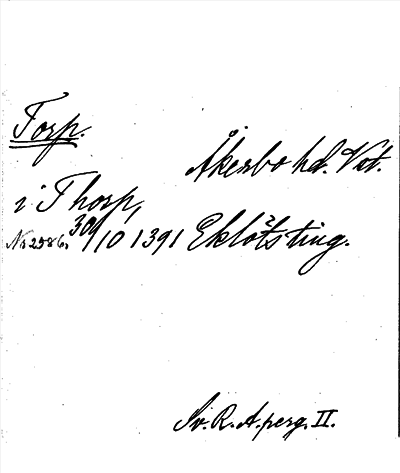 Torp.
Åkerbo hd. Vst.
i Thorp,
No 2586. 30/10 1391 Eklöfsting.
Sv. R. A. perg. II.